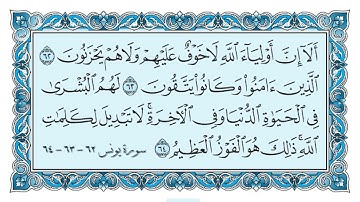 أَلَآ إِنَّ أَوْلِيَآءَ ٱللَّهِ لَا خَوْفٌ عَلَيْهِمْ وَلَا هُمْ يَحْزَنُونَ ٦٢
ٱلَّذِينَ ءَامَنُوا۟ وَكَانُوا۟ يَتَّقُونَ ٦٣ لَهُمُ ٱلْبُشْرَىٰ
فِى ٱلْحَيَوٰةِ ٱلدُّنْيَا وَفِى ٱلْـَٔاخِرَةِ ۚ لَا تَبْدِيلَ لِكَلِمَـٰتِ
ٱللَّهِ ۚ ذَٰلِكَ هُوَ ٱلْفَوْزُ ٱلْعَظِيمُ ٦٤ سورة يونس ٦٢ - ٦٣ - ٦٤